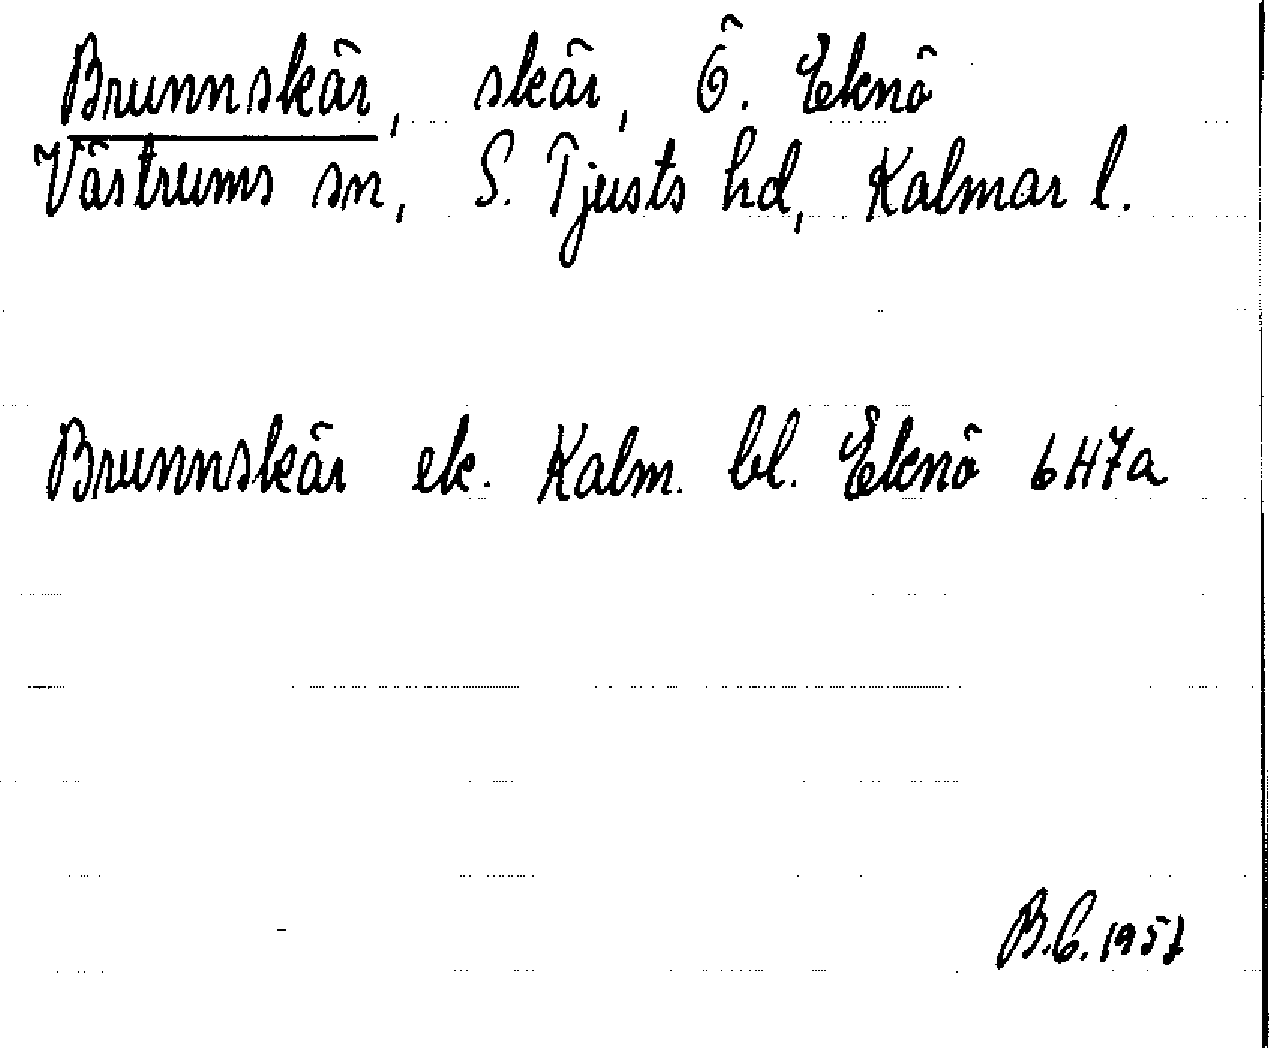 Brunnskär, skär, Ö. Eknö
Västrums sn, S. Tjusts hd, Kalmar l.
Brunnskär ek. Kalm. bl. Eknö 6H7a
B.C. 1957